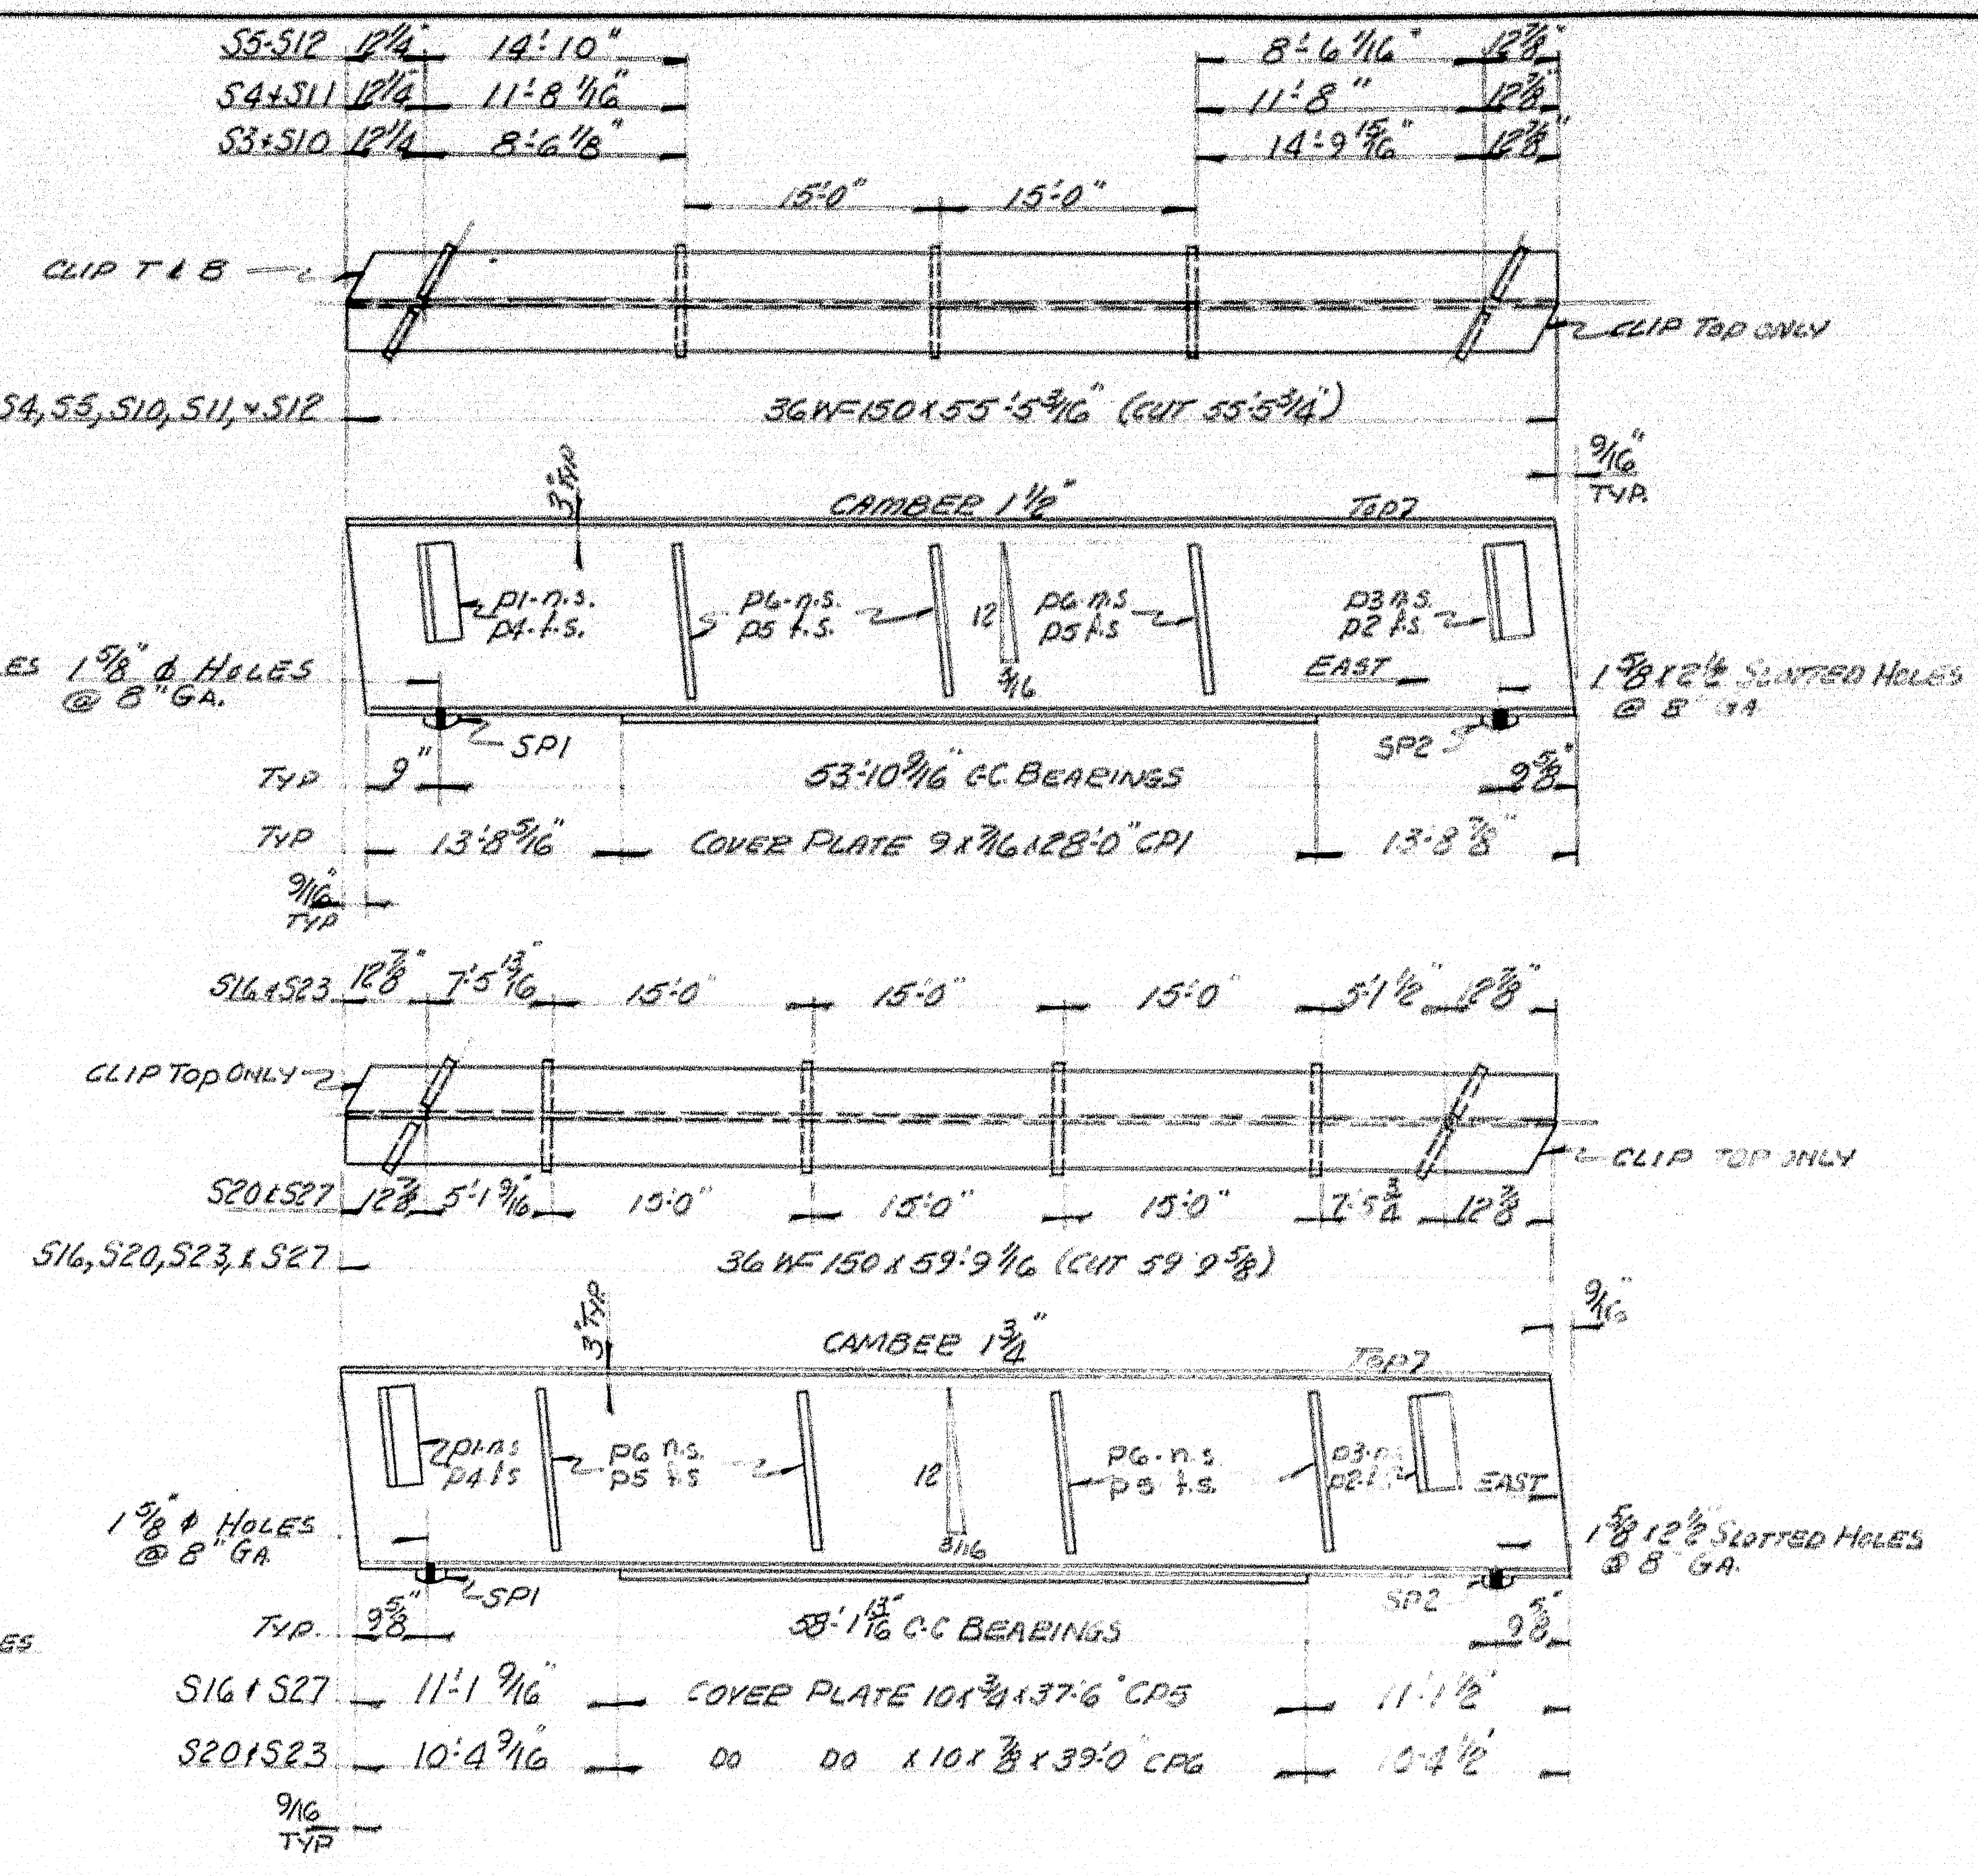 S5-S12 12 1/4" 14'-10" 8'-6 1/16" 12 7/8"
S4+S11 12 1/4" 11'-8 1/16" 11'-8" 12 7/8"
S3+S10 12 1/4 8'-6 1/8" 14'-9 15/16" 12 7/8"
15'-0" 15'-0"
CLIP T & B
CLIP TOP ONLY
S4, S5, S10, S11, & S12 36 WF 150 x 55'-5 3/16" (CUT 55'-5 3/4")
9/16"
TYP.
3" TYP
CAMBER 1 1/2" TOP
p1-n.s. p6-n.s. p6-n.s p3 n.s.
p4-f.s. p5 f.s. p5 f.s p2 f.s.
12
3/16
ES 1 5/8" ϕ HOLES EAST 1 5/8 x 2 1/2 SLOTTED HOLES
@ 8" GA. @ 8" GA
SP1 SP2
TYP 9" 53'-10 9/16" C-C. BEARINGS 9 5/8"
TYP 13'-8 5/16" COVER PLATE 9 x 7/16 x 28'-0" CP1 13'-8 7/8"
9/16"
TYP
S16 & S23 12 7/8" 7'-5 13/16" 15'-0" 15'-0" 15'-0" 5'-1 1/2" 12 7/8"
CLIP TOP ONLY
CLIP TOP ONLY
S20 & S27 12 7/8 5'-1 9/16" 15'-0" 15'-0" 15'-0" 7'-5 3/4 12 7/8
S16, S20, S23, & S27 36 WF 150 x 59'-9 1/16 (CUT 59'-9 5/8)
9/16"
3" TYP.
CAMBER 1 3/4" TOP
p1-n.s p6 n.s. p6-n.s p3-n
p4 f.s p5 f.s p5 f.s. p2-f
12
3/16
EAST
1 5/8" ϕ HOLES 1 5/8 x 2 1/2" SLOTTED HOLES
@ 8" GA. @ 8" GA.
SP1 SP2
TYP. 9 5/8" 58'-1 13/16" C-C BEARINGS 9 5/8"
ES
S16 & S27 11'-1 9/16" COVER PLATE 10 x 3/4 x 37'-6" CP5 11'-1 1/2"
S20 & S23 10'-4 9/16 DO DO x 10 x 7/8 x 39'-0" CP6 10-4 1/2"
9/16
TYP